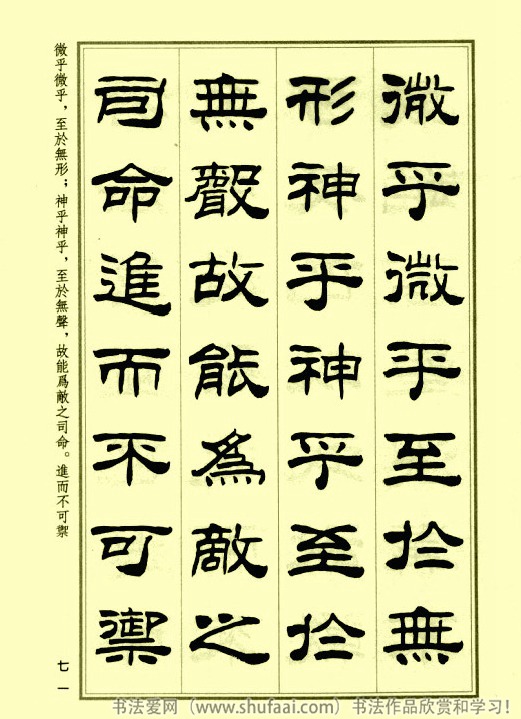 微乎微乎至於無
形神乎神乎至於
無聲故能為敵之
司命進而不可禦
微乎微乎，至於無形；神乎神乎，至於無聲，故能爲敵之司命。進而不可禦
七一
书法爱网（www.shufaai.com）书法作品欣赏和学习！